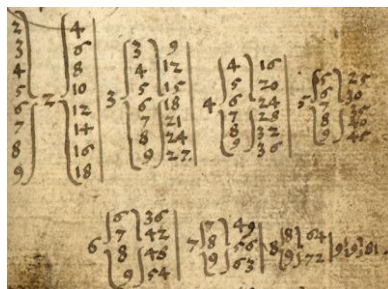 2 4
3 6
4 8
5 2 10
6 12
7 14
8 16
9 18
3 9
4 12
5 15
3 6 18
7 21
8 24
9 27
4 16
5 20
4 6 24
7 28
8 32
9 36
5 25
5 6 30
7 35
8 40
9 45
6 36
7 42
6 8 48
9 54
7 49
7 8 56
9 63
8 8 64
9 72
9 9 81